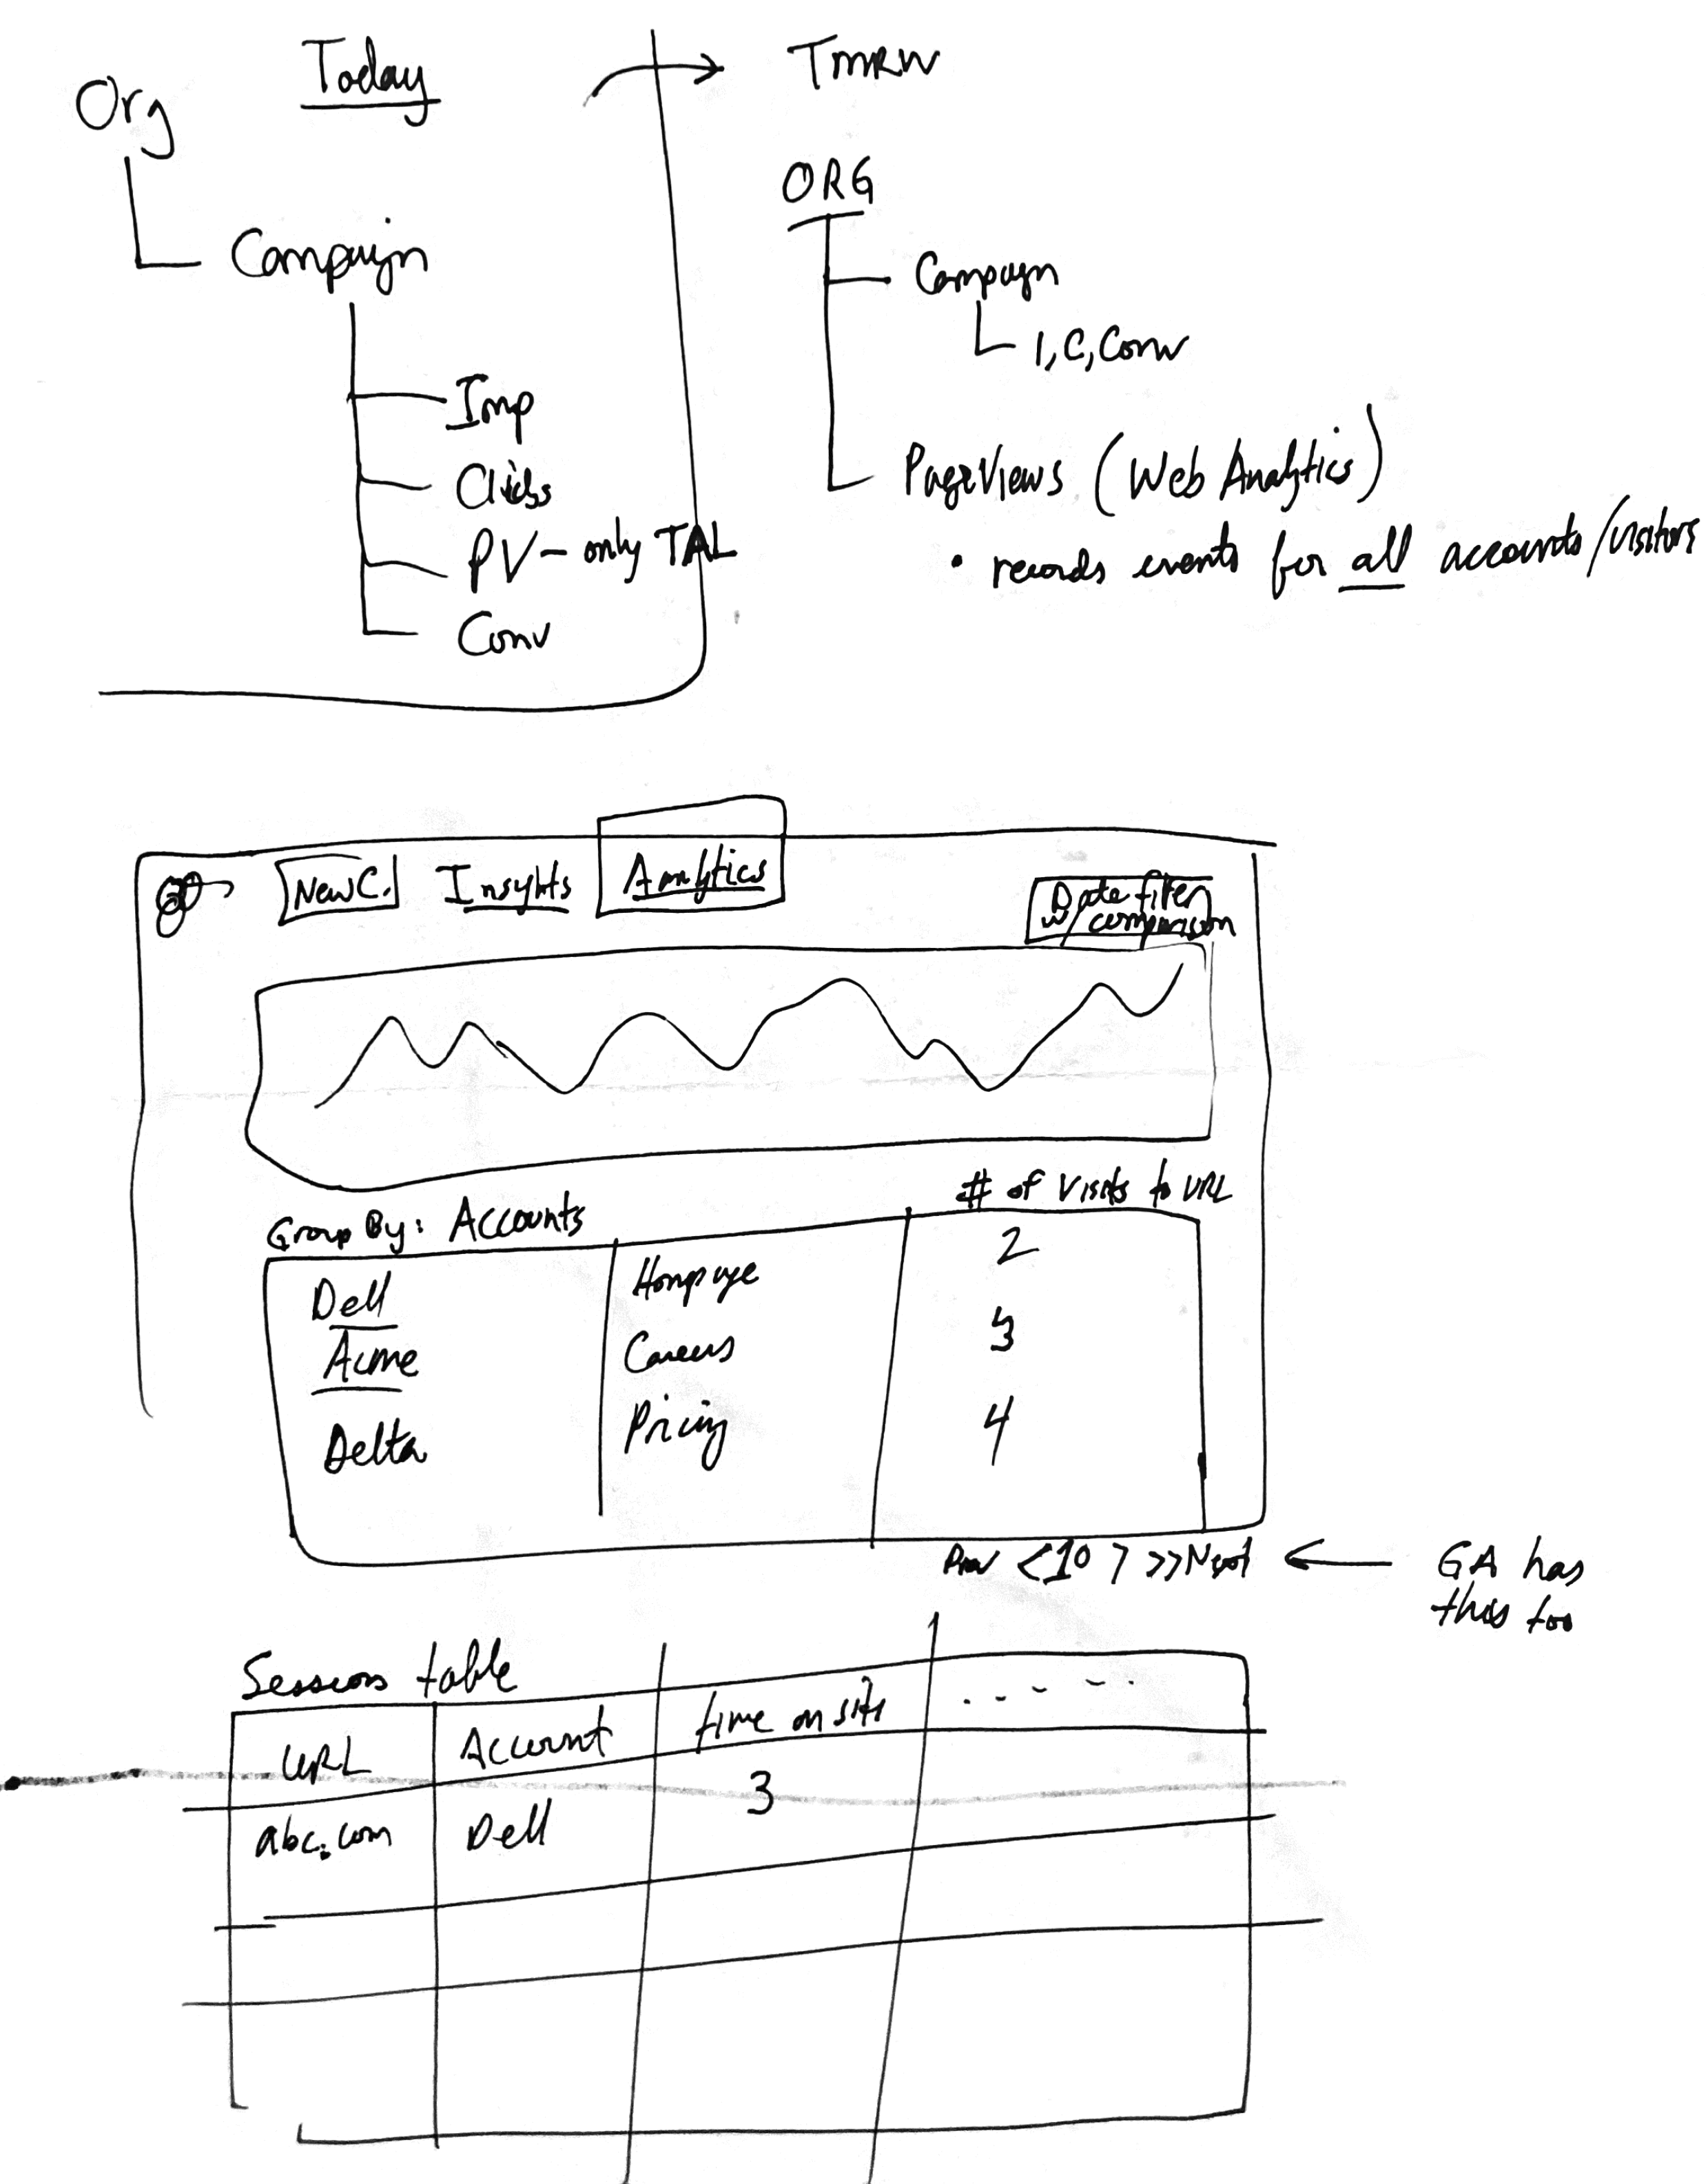 Today
Org
Campaign
Imp
Clicks
PV - only TAL
Conv
TMRW
ORG
Campaign
I, C, Conv
PageViews (Web Analytics)
• records events for all accounts/visitors
New C.
Insights
Analytics
Date filter
w/ comparison
Group By: Accounts
# of Visits to URL
Dell Hompage 2
Acme Careers 3
Delta Pricing 4
Prev <10> >>Next
GA has
this too
Sessions table
URL Account time on site
abc.com Dell 3